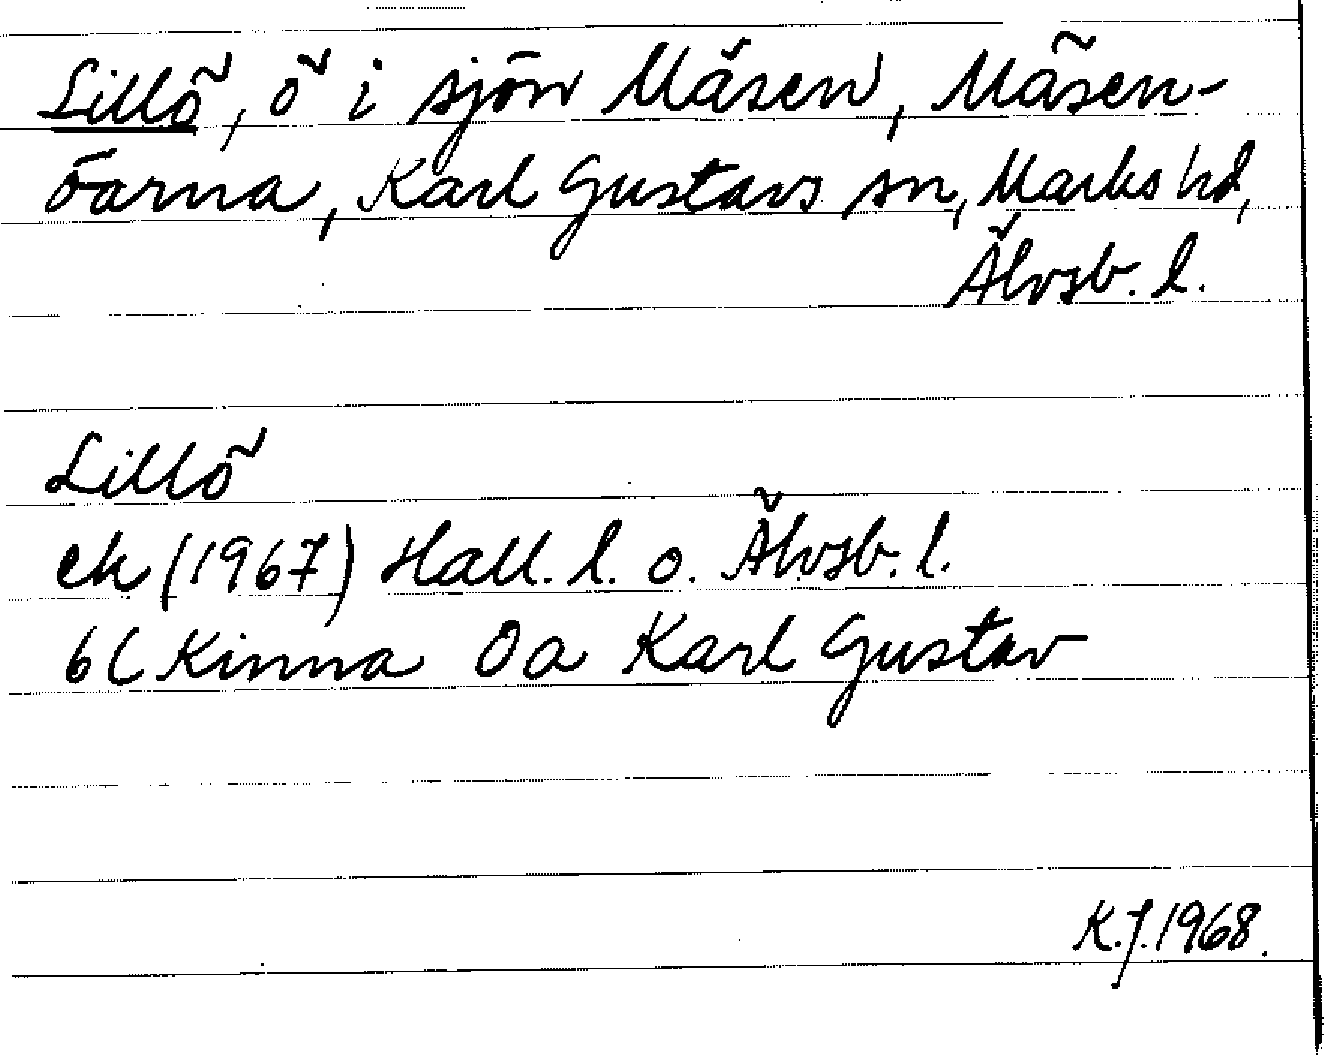 Lillö, ö i sjön Mäsen, Mäsen-
öarna, Karl Gustavs sn, Marks hd,
Älvsb. l.
Lillö
ek (1967) Hall. l. o. Älvsb. l.
6C Kinna 0a Karl Gustav
K.J. 1968.